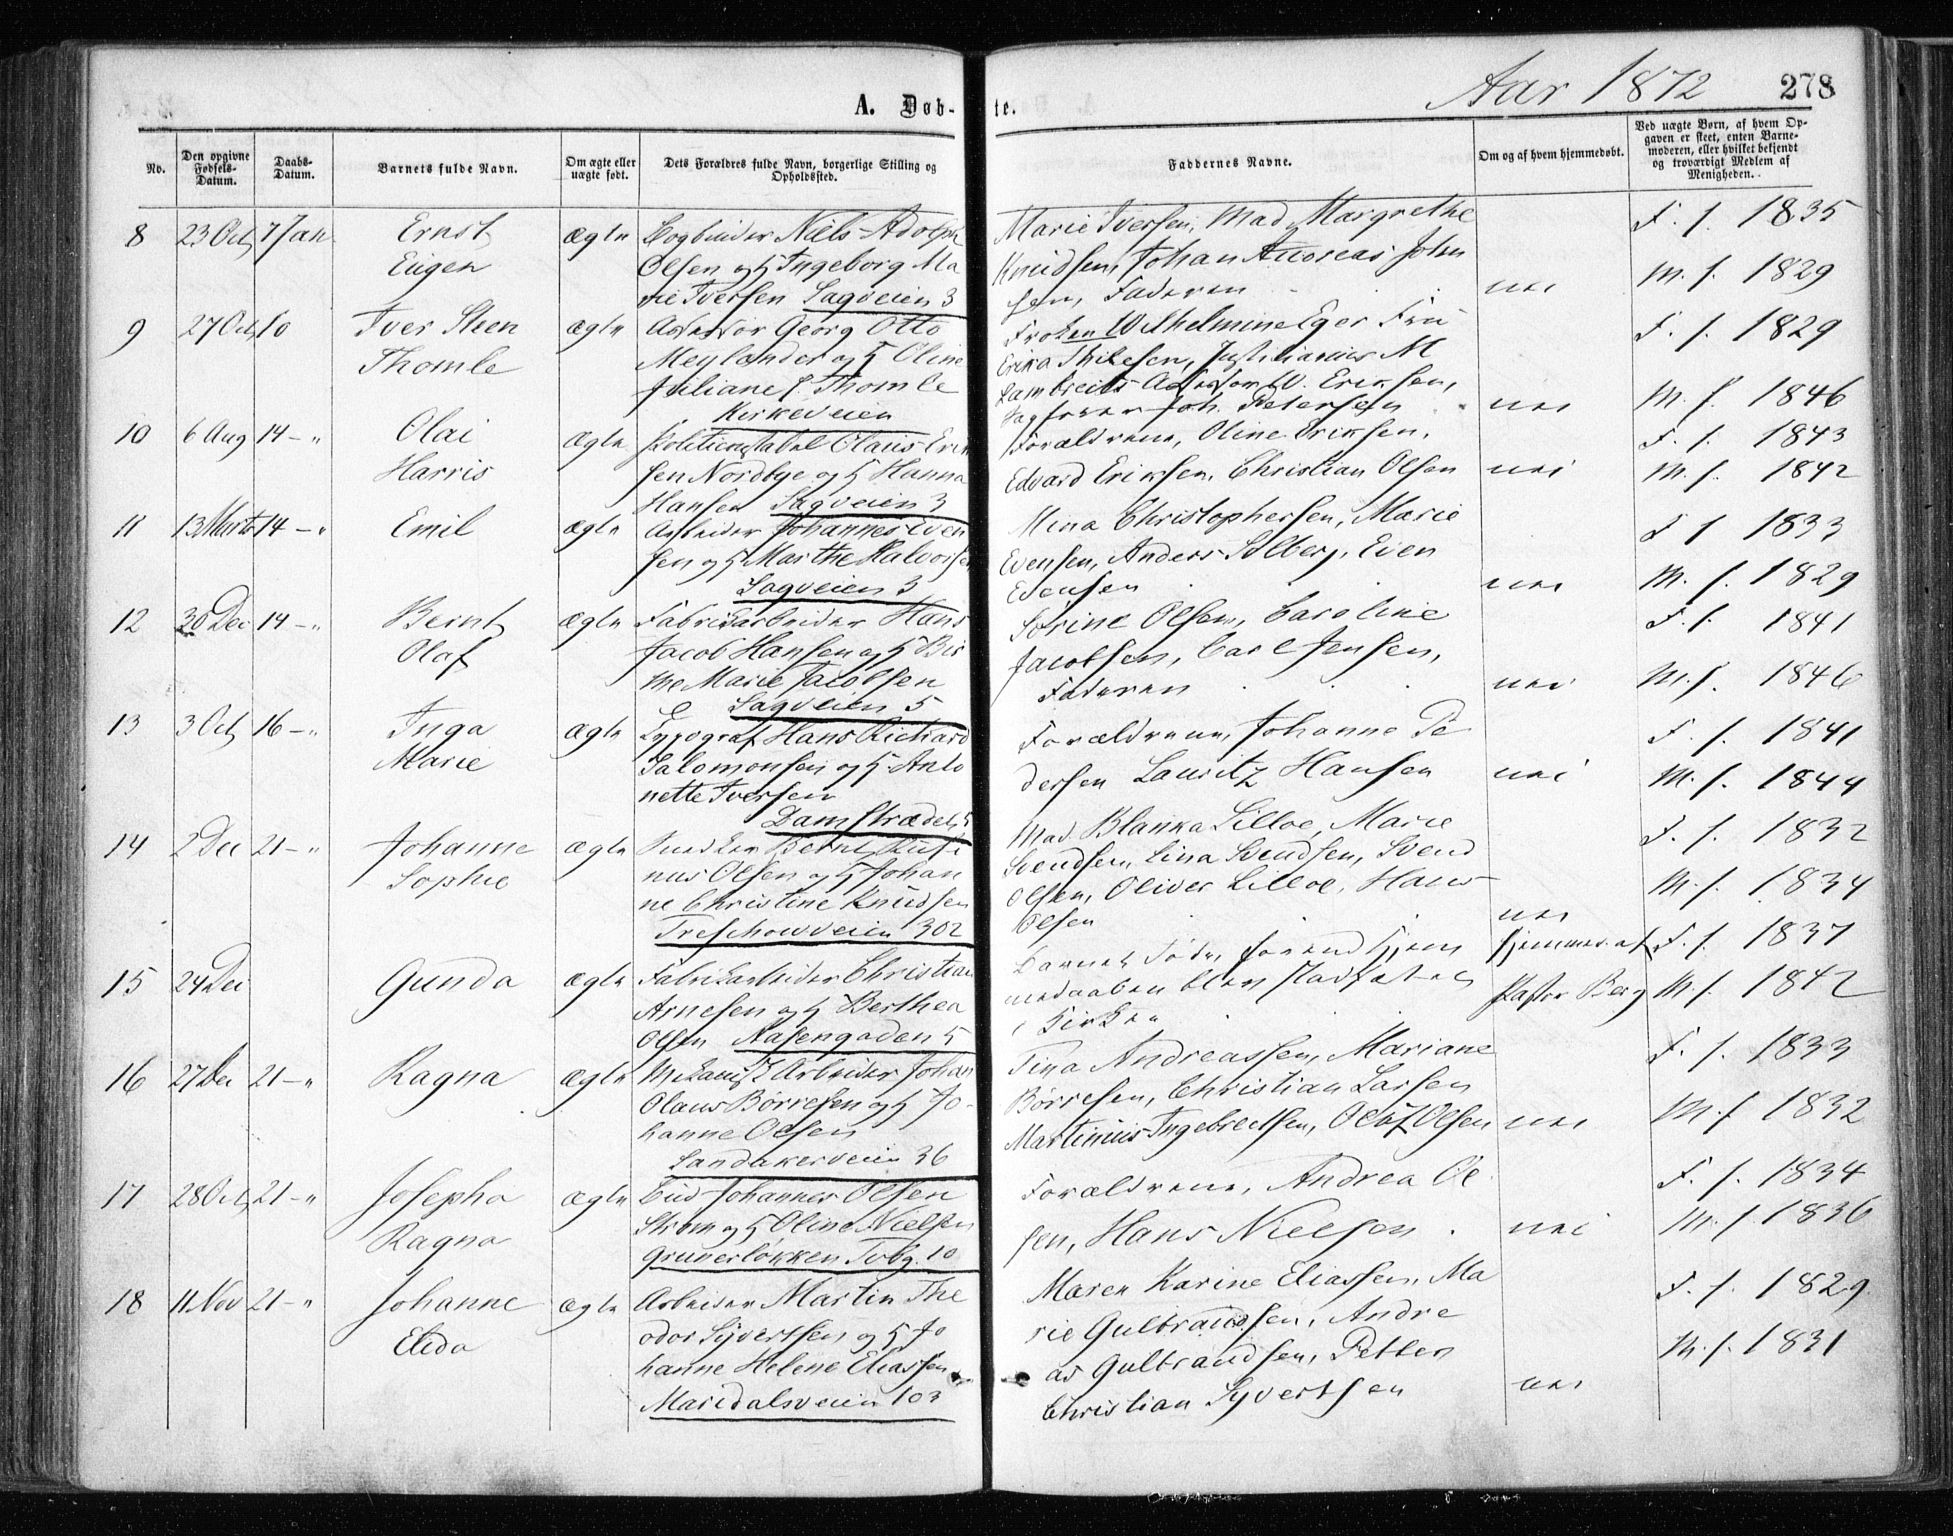 Aar 1872
278
A. Døb-
te.
No.
Den opgivne Fødsels-Datum.
Daabs-Datum.
Barnets fulde Navn.
Om ægte eller uægte født.
Dets Forældres fulde Navn, borgerlige Stilling og Opholdssted.
Faddernes Navne.
Om og af hvem hjemmedøbt.
Ved uægte Børn, af hvem Opgaven er skeet, enten Barnemoderen, eller hvilket bekjendt og troværdigt Medlem af Menigheden.
8 23 Oct 7 Jan Ernst Eugen ægte
Bogbinder Niels Adolph
Olsen og H Ingeborg Ma
rie Iversen Sagveien 3
Marie Iversen, Mad Margrethe
Knudsen, Johan Andreas John
sen, Faderen
nei
F. f. 1835
M. f. 1829
9 27 Oct 10 Iver Steen Thomle ægte
Assessor Georg Otto
Meylænder og H Oline
Juliane f. Thomle
Kirkeveien
Frøken Wilhelmine Eger Fru
Lambrechts Assessor W. Eriksen,
Joh. Petersen
nei
F. f. 1829
M. f. 1846
10 6 Aug 14 - " Olai Harris ægte
Politikonstabel Olaus Erik
sen Nordbye og H Hanna
Hansen Sagveien 3
Forældrene, Oline Eriksen,
Edvard Eriksen, Christian Olsen
nei
F. f. 1843
M. f. 1842
11 13 Marts 14 - " Emil ægte
Arbeider Johannes Even
sen og H Marthe Halvorsen
Sagveien 3
Mina Christophersen, Marie
Evensen, Anders Solberg, Even
Evensen
nei
F f 1833
M. f. 1829
12 30 Dec 14 - " Bernt Olaf ægte
Fabrikarbeider Hans
Jacob Hansen og H Bir
the Marie Jacobsen
Sagveien 5
Sorine Olsen, Caroline
Jacobsen, Carl Jensen,
Faderen
nei
F. f. 1841
M. f. 1846
13 3 Oct 16 - " Inga Marie ægte
Typograf Hans Richard
Salomonsen og H Anto
nette Iversen
Damstrædet 5
Forældrene, Johanne Pe
dersen Lauritz Hansen
nei
F. f. 1841
M. f. 1844
14 2 Dec 21 - " Johanne Sophie ægte
Snedker Bernt Rufi
nus Olsen og H Johan
ne Christine Knudsen
Treschowveien 302
Mad. Blanka Lilloe, Marie
Svendsen, Lina Svendsen, Svend
Olsen, Oliver Lilloe, Hans
Olsen
nei
F. f. 1832
M. f. 1834
15 24 Dec Gunda ægte
Fabrikarbeider Christian
Arnesen og H Berthea
Olsen Aasengaden 5
Barnet døde forend Hjem
medaaben blev stadfæstet
i Kirken
Hjemmed. af
Pastor Berg
F. f. 1837
M. f. 1842
16 27 Dec 21 - " Ragna ægte
Mekanisk Arbeider Johan
Olaus Børresen og H Jo-
hanne Olsen
Sandakerveien 36
Tina Andreassen, Mariane
Børresen, Christian Larsen
Martinius Ingebretsen, Olaf Olsen
nei
F. f. 1833
M. f 1832
17 28 Oct 21 - " Josepha Ragna ægte
Bud Johannes Olsen
Strøm og H Oline Nielsen
Grünerløkken Tvbg. 10
Forældrene, Andrea Ol
sen, Hans Nielsen
nei
F. f. 1834
M. f. 1836
18 11 Nov 21 - " Johanne Elida ægte
Arbeider Martin The
odor Syvertsen og H Jo
hanne Helene Eliassen
Maridalsveien 103
Maren Karine Eliassen, Ma
rie Gulbrandsen, Andre
as Gulbrandsen, Petter
Christian Syvertsen
nei
F. f. 1829
M. f. 1831